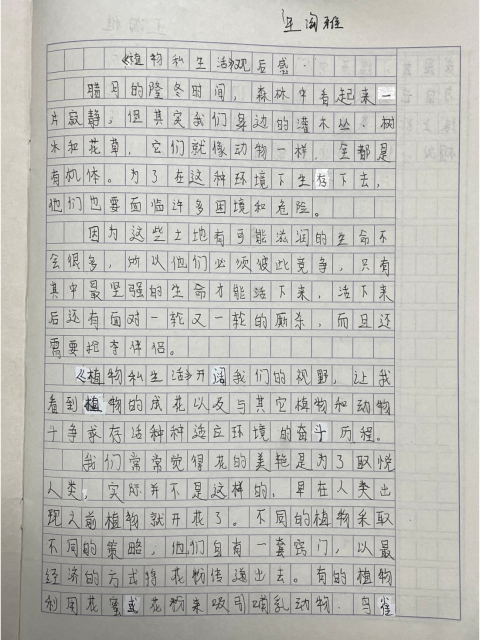 《植物私生活》观后感
腊月的隆冬时间，森林中看起来一
片寂静，但其实我们身边的灌木丛、树
木和花草，它们就像动物一样，全都是
有机体。为了在这种环境下生存下去，
他们也要面临许多困境和危险。
因为这些土地有可能滋润的生命不
会很多，所以他们必须彼此竞争，只有
其中最坚强的生命才能活下来，活下来
后还有面对一轮又一轮的厮杀，而且还
需要抢夺伴侣。
《植物私生活》开阔我们的视野，让我
看到植物的成花以及与其它植物和动物
斗争求存活种种适应环境的奋斗历程。
我们常常觉得花的美艳是为了取悦
人类，实际并不是这样的，早在人类出
现之前植物就开花了。不同的植物采取
不同的策略，他们自有一套窍门，以最
经济的方式将花粉传递出去。有的植物
利用花蜜或花粉来吸引哺乳动物、鸟雀